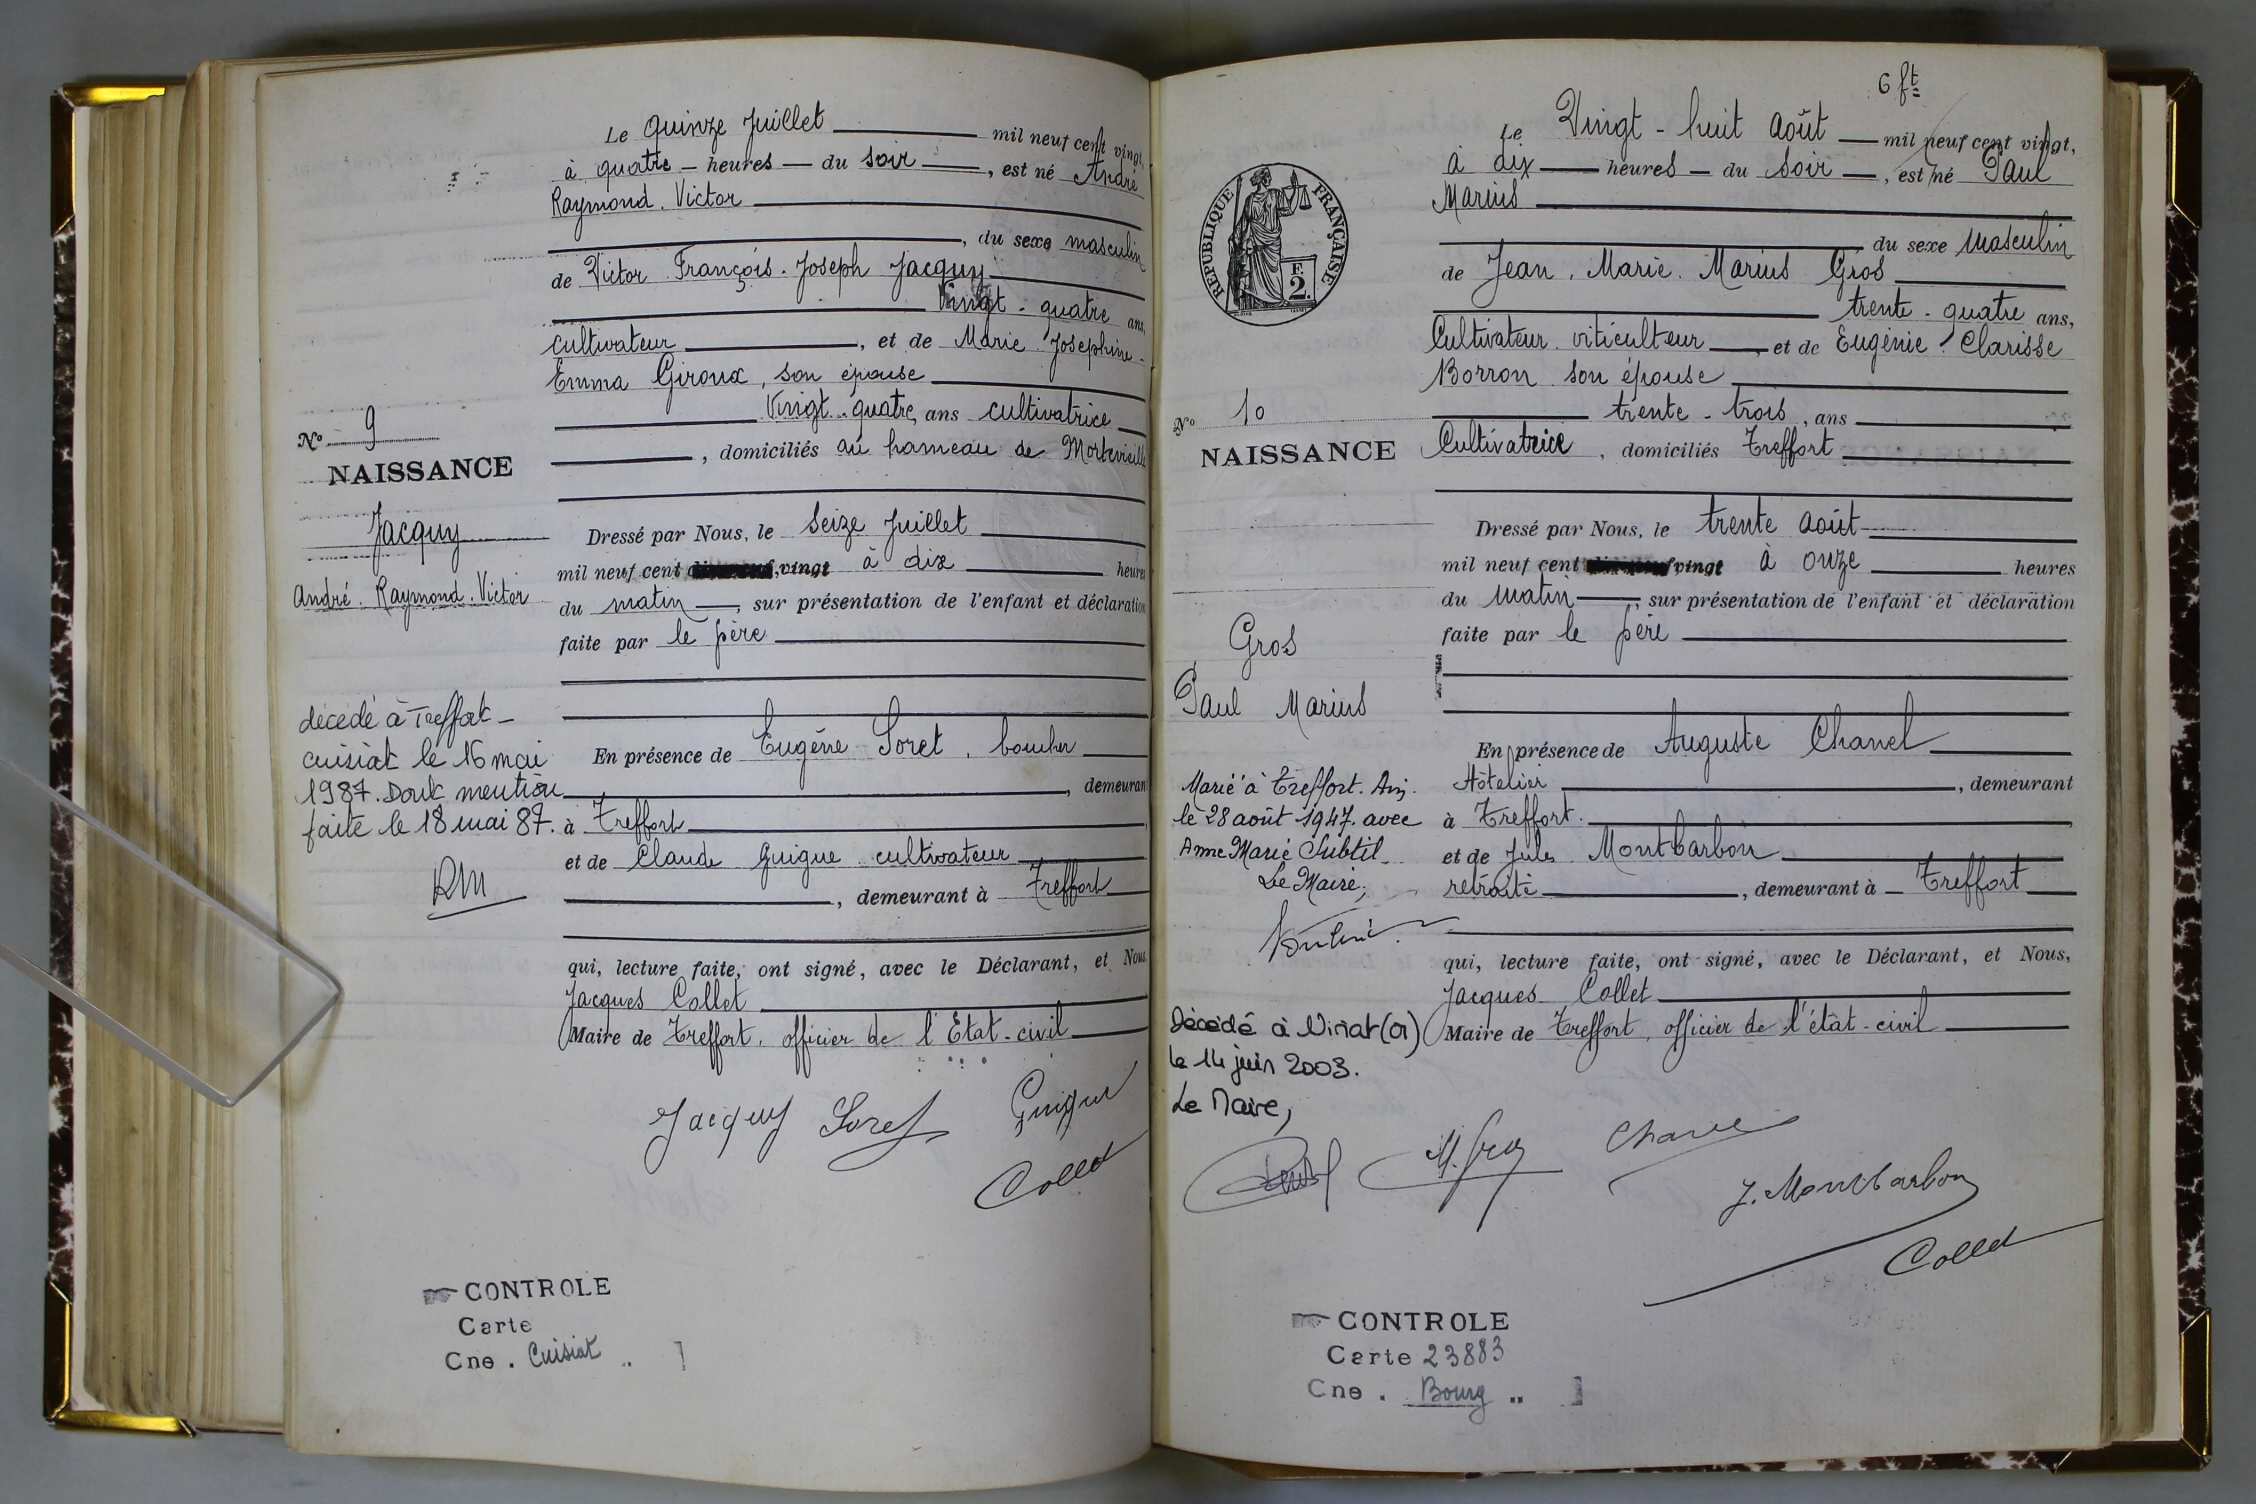 Le quinze Juillet mil neuf cent vingt,
à quatre heures du soir, est né André
Raymond. Victor
, du sexe masculin
de Victor François. Joseph Jacquy
Vingt-quatre ans,
cultivateur, et de Marie Josephine
Emma Giroux, son épouse
Vingt-quatre ans cultivatrice
, domiciliés au hameau de
Nº 9
NAISSANCE
Jacquy
André. Raymond. Victor
Dressé par Nous, le seize Juillet
mil neuf cent vingt à dix heures
du matin, sur présentation de l'enfant et déclaration
faite par le père
décédé à Treffort-
cuisiat le 16 mai
1987. Dont mention
faite le 18 mai 87.
RM
En présence de Eugène Soret, boucher
, demeurant
à Treffort
et de Claude Guigue cultivateur
, demeurant à Treffort
qui, lecture faite, ont signé, avec le Déclarant, et Nous
Jacques Collet
Maire de Treffort, officier de l'Etat-civil
Jacquy Soret Guigue
Collet
CONTROLE
Carte
Cne. Cuisiat
6 ft
Le Vingt-huit Août mil neuf cent vingt,
à dix heures du soir, est né Paul
Marius
du sexe masculin
de Jean. Marie. Marius Gros
trente-quatre ans,
Cultivateur viticulteur, et de Eugénie Clarisse
Borron son épouse
trente-trois, ans
Cultivatrice, domiciliés Treffort
REPUBLIQUE FRANÇAISE
F.
2.
Nº 10
NAISSANCE
Gros
Paul Marius
Dressé par Nous, le trente août
mil neuf cent vingt à onze heures
du matin, sur présentation de l'enfant et déclaration
faite par le père
Marié à Treffort. Ain.
le 28 août 1947. avec
Anne Marie Subtil
Le Maire,
Décédé à Viriat (01)
le 14 juin 2003.
Le Maire,
En présence de Auguste Chanel
Hôtelier, demeurant
à Treffort.
et de Jules Montbarbon
retraité, demeurant à Treffort
qui, lecture faite, ont signé, avec le Déclarant, et Nous,
Jacques Collet
Maire de Treffort, officier de l'état-civil
M. Gros Chanel
J. Montbarbon
Collet
CONTROLE
Carte 23883
Cne. Bourg